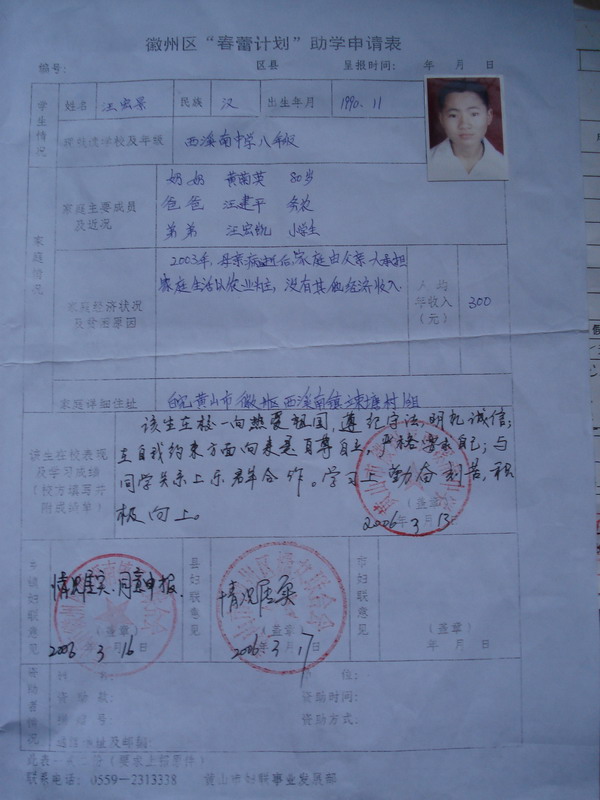 徽州区“春蕾计划”助学申请表
编号: 区县 呈报时间: 年 月 日
学生情况
姓名 汪宏景 民族 汉 出生年月 1990.11
现就读学校及年级 西溪南中学八年级
家庭情况
家庭主要成员及近况
奶奶 黄菊英 80岁
爸爸 汪建平 务农
弟弟 汪宏凯 小学生
家庭经济状况及贫困原因
2003年,母亲病逝后,家庭由父亲一人承担
家庭生活以农业为主,没有其他经济收入.
人均年收入(元) 300
家庭详细住址 皖黄山市徽州区西溪南镇 塘村 组
该生在校表现及学习成绩(校方填写并附成绩单)
该生在校一向热爱祖国,遵纪守法,明礼诚信;
在自我约束方面向来是自尊自立,严格要求自己;与
同学关系上乐群合作。学习上勤奋刻苦,积
极向上。
(盖章)
2006年3月13日
乡镇妇联意见
情况属实.同意申报.
(盖章)
2006 3 16
县妇联意见
情况属实
(盖章)
2006 3 17
市妇联意见
(盖章)
年 月 日
资助者情况
姓名: 单位:
资助款: 资助时间:
资助方式:
通信地址及邮编:
此表一式二份(要求上报原件)
联系电话:0559-2313338 黄山市妇联事业发展部